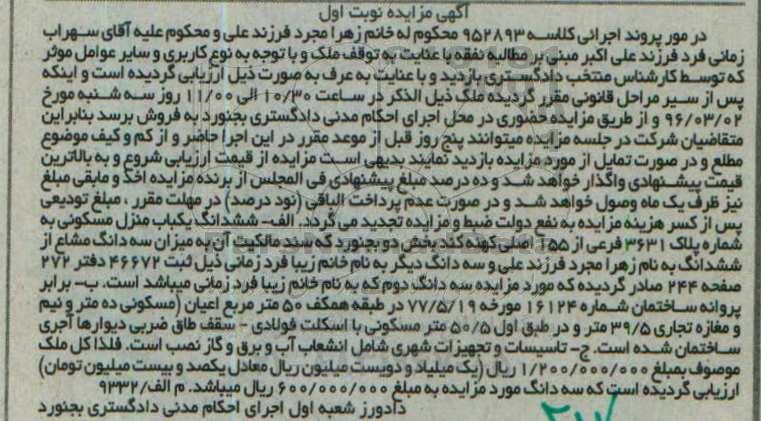 آگهی مزایده نوبت اول
در مور پروند اجرائی کلاسه ۹۵۲۸۹۳ محکوم له خانم زهرا مجرد فرزند علی و محکوم علیه آقای سهراب
زمانی فرد فرزند علی اکبر مبنی بر مطالبه نفقه با عنایت به توقف ملک و با توجه به نوع کاربری و سایر عوامل موثر
که توسط کارشناس منتخب دادگستری بازدید و با عنایت به عرف به صورت ذیل ارزیابی گردیده است و اینکه
پس از سیر مراحل قانونی مقرر گردیده ملک ذیل الذکر در ساعت ۱۰/۳۰ الی ۱۱/۰۰ روز سه شنبه مورخ
۹۶/۰۳/۰۲ و از طریق مزایده حضوری در محل اجرای احکام مدنی دادگستری بجنورد به فروش برسد بنابراین
متقاضیان شرکت در جلسه مزایده میتوانند پنج روز قبل از موعد مقرر در این اجرا حاضر و از کم و کیف موضوع
مطلع و در صورت تمایل از مورد مزایده بازدید نمایند بدیهی است مزایده از قیمت ارزیابی شروع و به بالاترین
قیمت پیشنهادی واگذار خواهد شد و ده درصد مبلغ پیشنهادی فی المجلس از برنده مزایده اخذ و مابقی مبلغ
نیز ظرف یک ماه وصول خواهد شد و در صورت عدم پرداخت الباقی (نود درصد) در مهلت مقرر ، مبلغ تودیعی
پس از کسر هزینه مزایده به نفع دولت ضبط و مزایده تجدید می گردد. الف- ششدانگ یکباب منزل مسکونی به
شماره پلاک ۳۶۳۱ فرعی از ۱۵۵ اصلی کهنه کند بخش دو بجنورد که سند مالکیت آن به میزان سه دانگ مشاع از
ششدانگ به نام زهرا مجرد فرزند علی و سه دانگ دیگر به نام خانم زیبا فرد زمانی ذیل ثبت ۴۶۶۷۲ دفتر ۲۷۲
صفحه ۲۴۴ صادر گردیده که مورد مزایده سه دانگ دوم که به نام خانم زیبا فرد زمانی میباشد است. ب- برابر
پروانه ساختمان شماره ۱۶۱۲۴ مورخه ۷۷/۵/۱۹ در طبقه همکف ۵۰ متر مربع اعیان (مسکونی ده متر و نیم
و مغازه تجاری ۳۹/۵ متر و در طبق اول ۵۰/۵ متر مسکونی با اسکلت فولادی - سقف طاق ضربی دیوارها آجری
ساختمان شده است. ج- تاسیسات و تجهیزات شهری شامل انشعاب آب و برق و گاز نصب است. فلذا کل ملک
موصوف بمبلغ ۱/۲۰۰/۰۰۰/۰۰۰ ریال (یک میلیاد و دویست میلیون ریال معادل یکصد و بیست میلیون تومان)
ارزیابی گردیده است که سه دانگ مورد مزایده به مبلغ ۶۰۰/۰۰۰/۰۰۰ ریال میباشد. م الف/۹۳۳۲
دادورز شعبه اول اجرای احکام مدنی دادگستری بجنورد